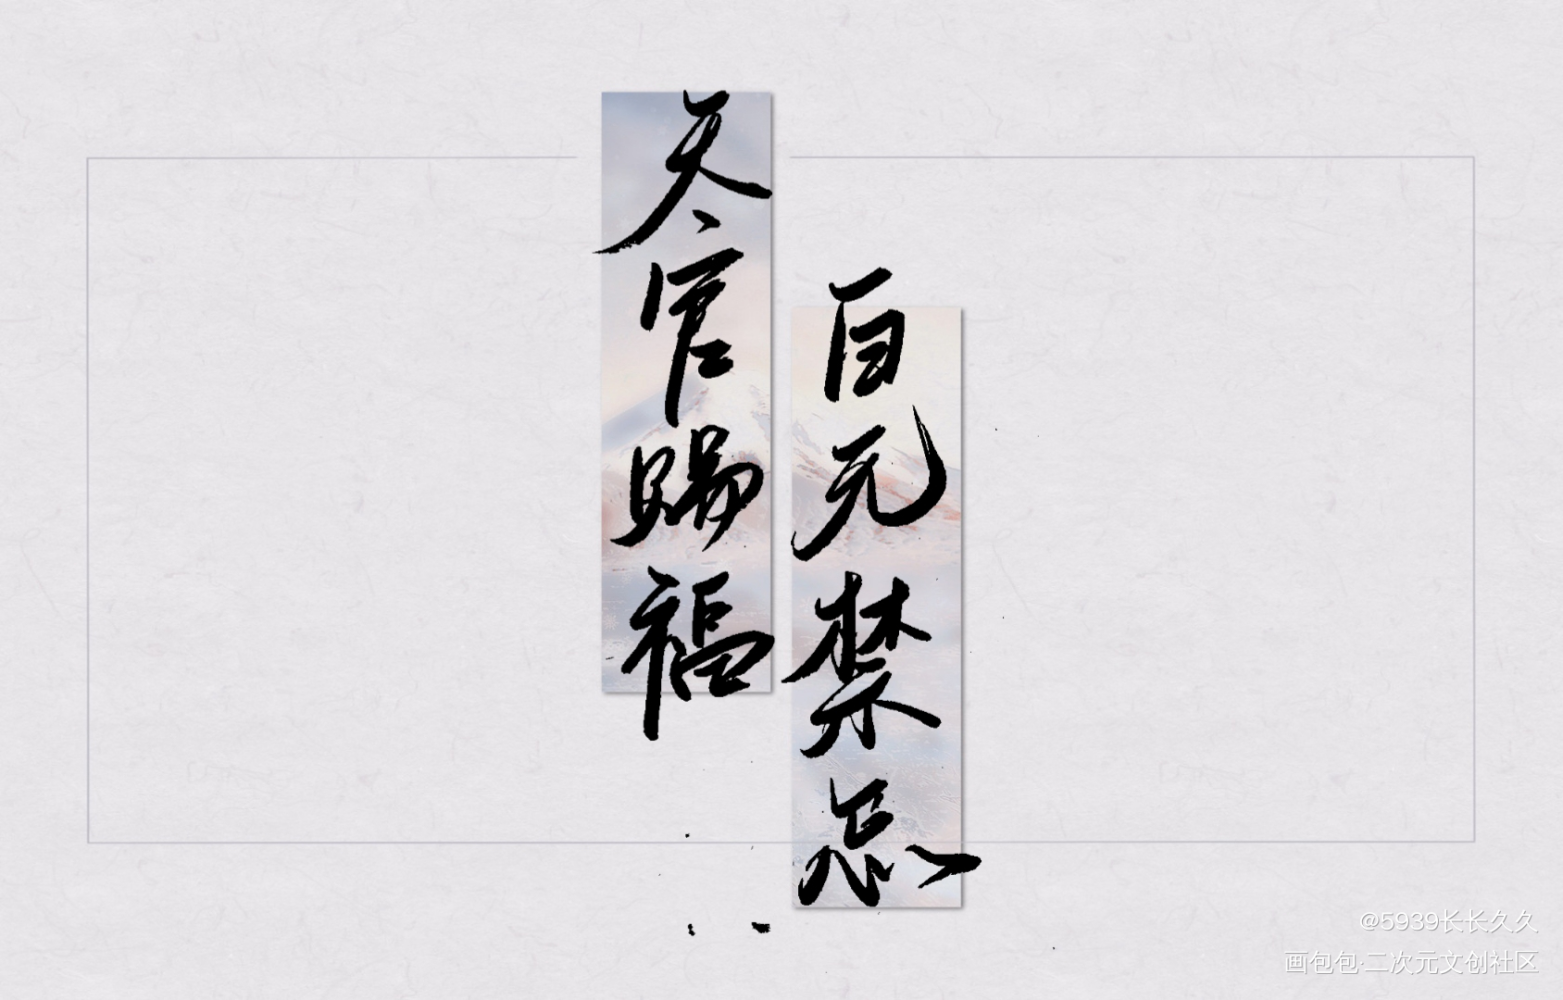 天官赐福
百无禁忌
@5939长长久久
画包包·二次元文创社区